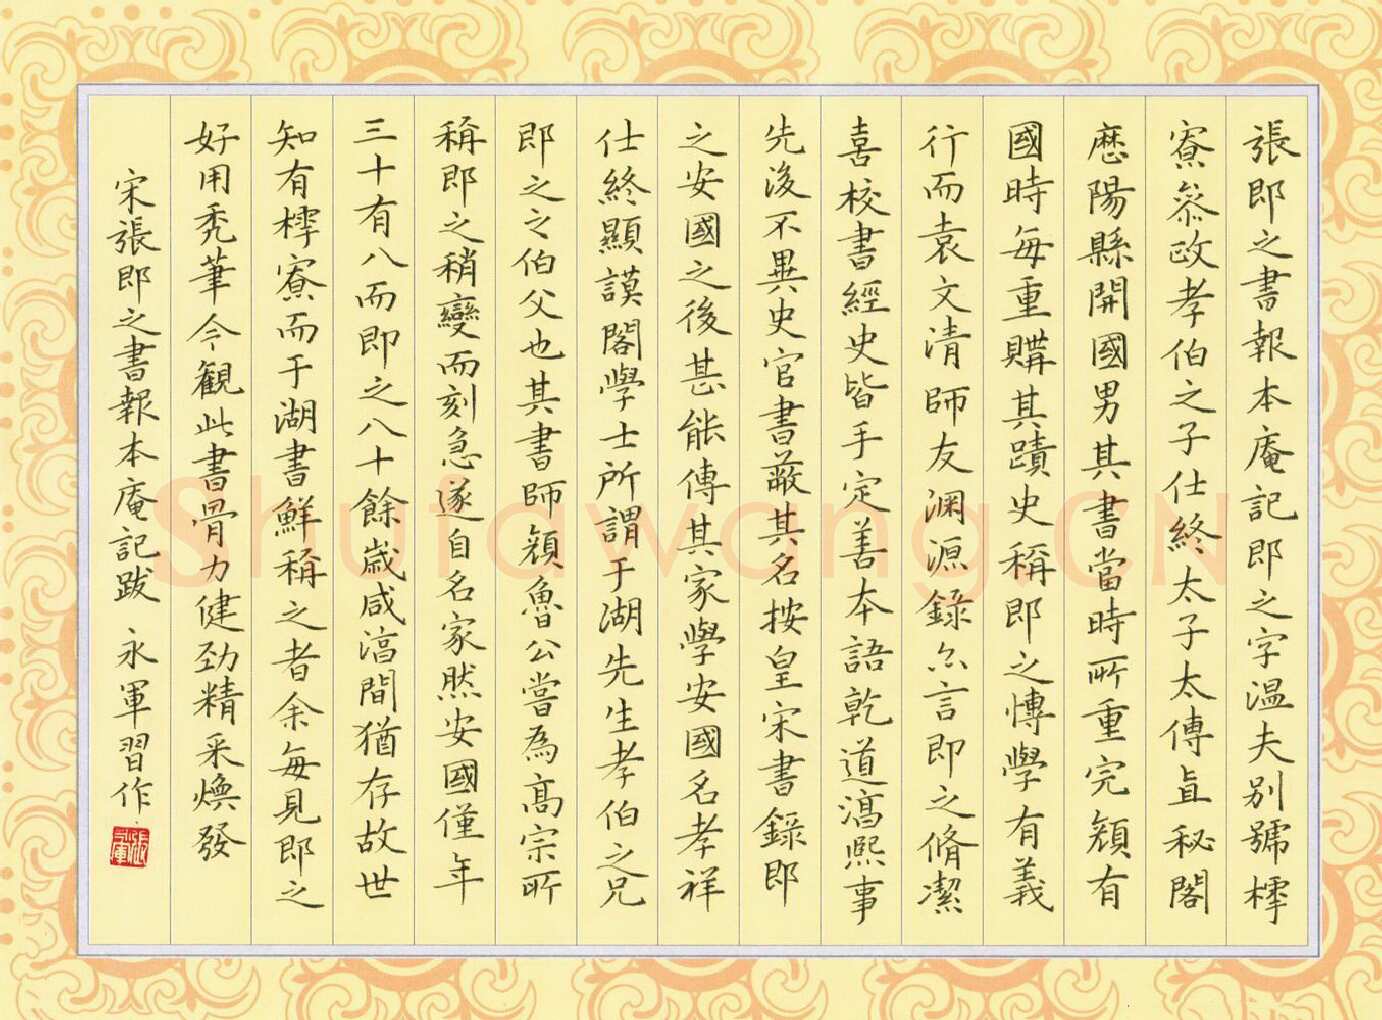 張即之書報本庵記即之字温夫別號樗
寮叅政孝伯之子仕終太子太傅直秘閣
歷陽縣開國男其書當時所重完顏有
國時每重購其蹟史稱即之愽學有義
行而袁文清師友淵源錄尒言即之脩潔
喜校書經史皆手定善本語乾道淳熙事
先後不異史官書蔽其名按皇宋書錄即
之安國之後甚能傳其家學安國名孝祥
仕終顯謨閣學士所謂于湖先生孝伯之兄
即之之伯父也其書師顏魯公嘗為高宗所
稱即之稍變而刻急遂自名家然安國僅年
三十有八而即之八十餘歲咸淳間猶存故世
知有樗寮而于湖書鮮稱之者余每見即之
好用秃筆今観此書骨力健勁精采煥發
宋張即之書報本庵記跋 永軍習作
張軍
Shufawang.CN